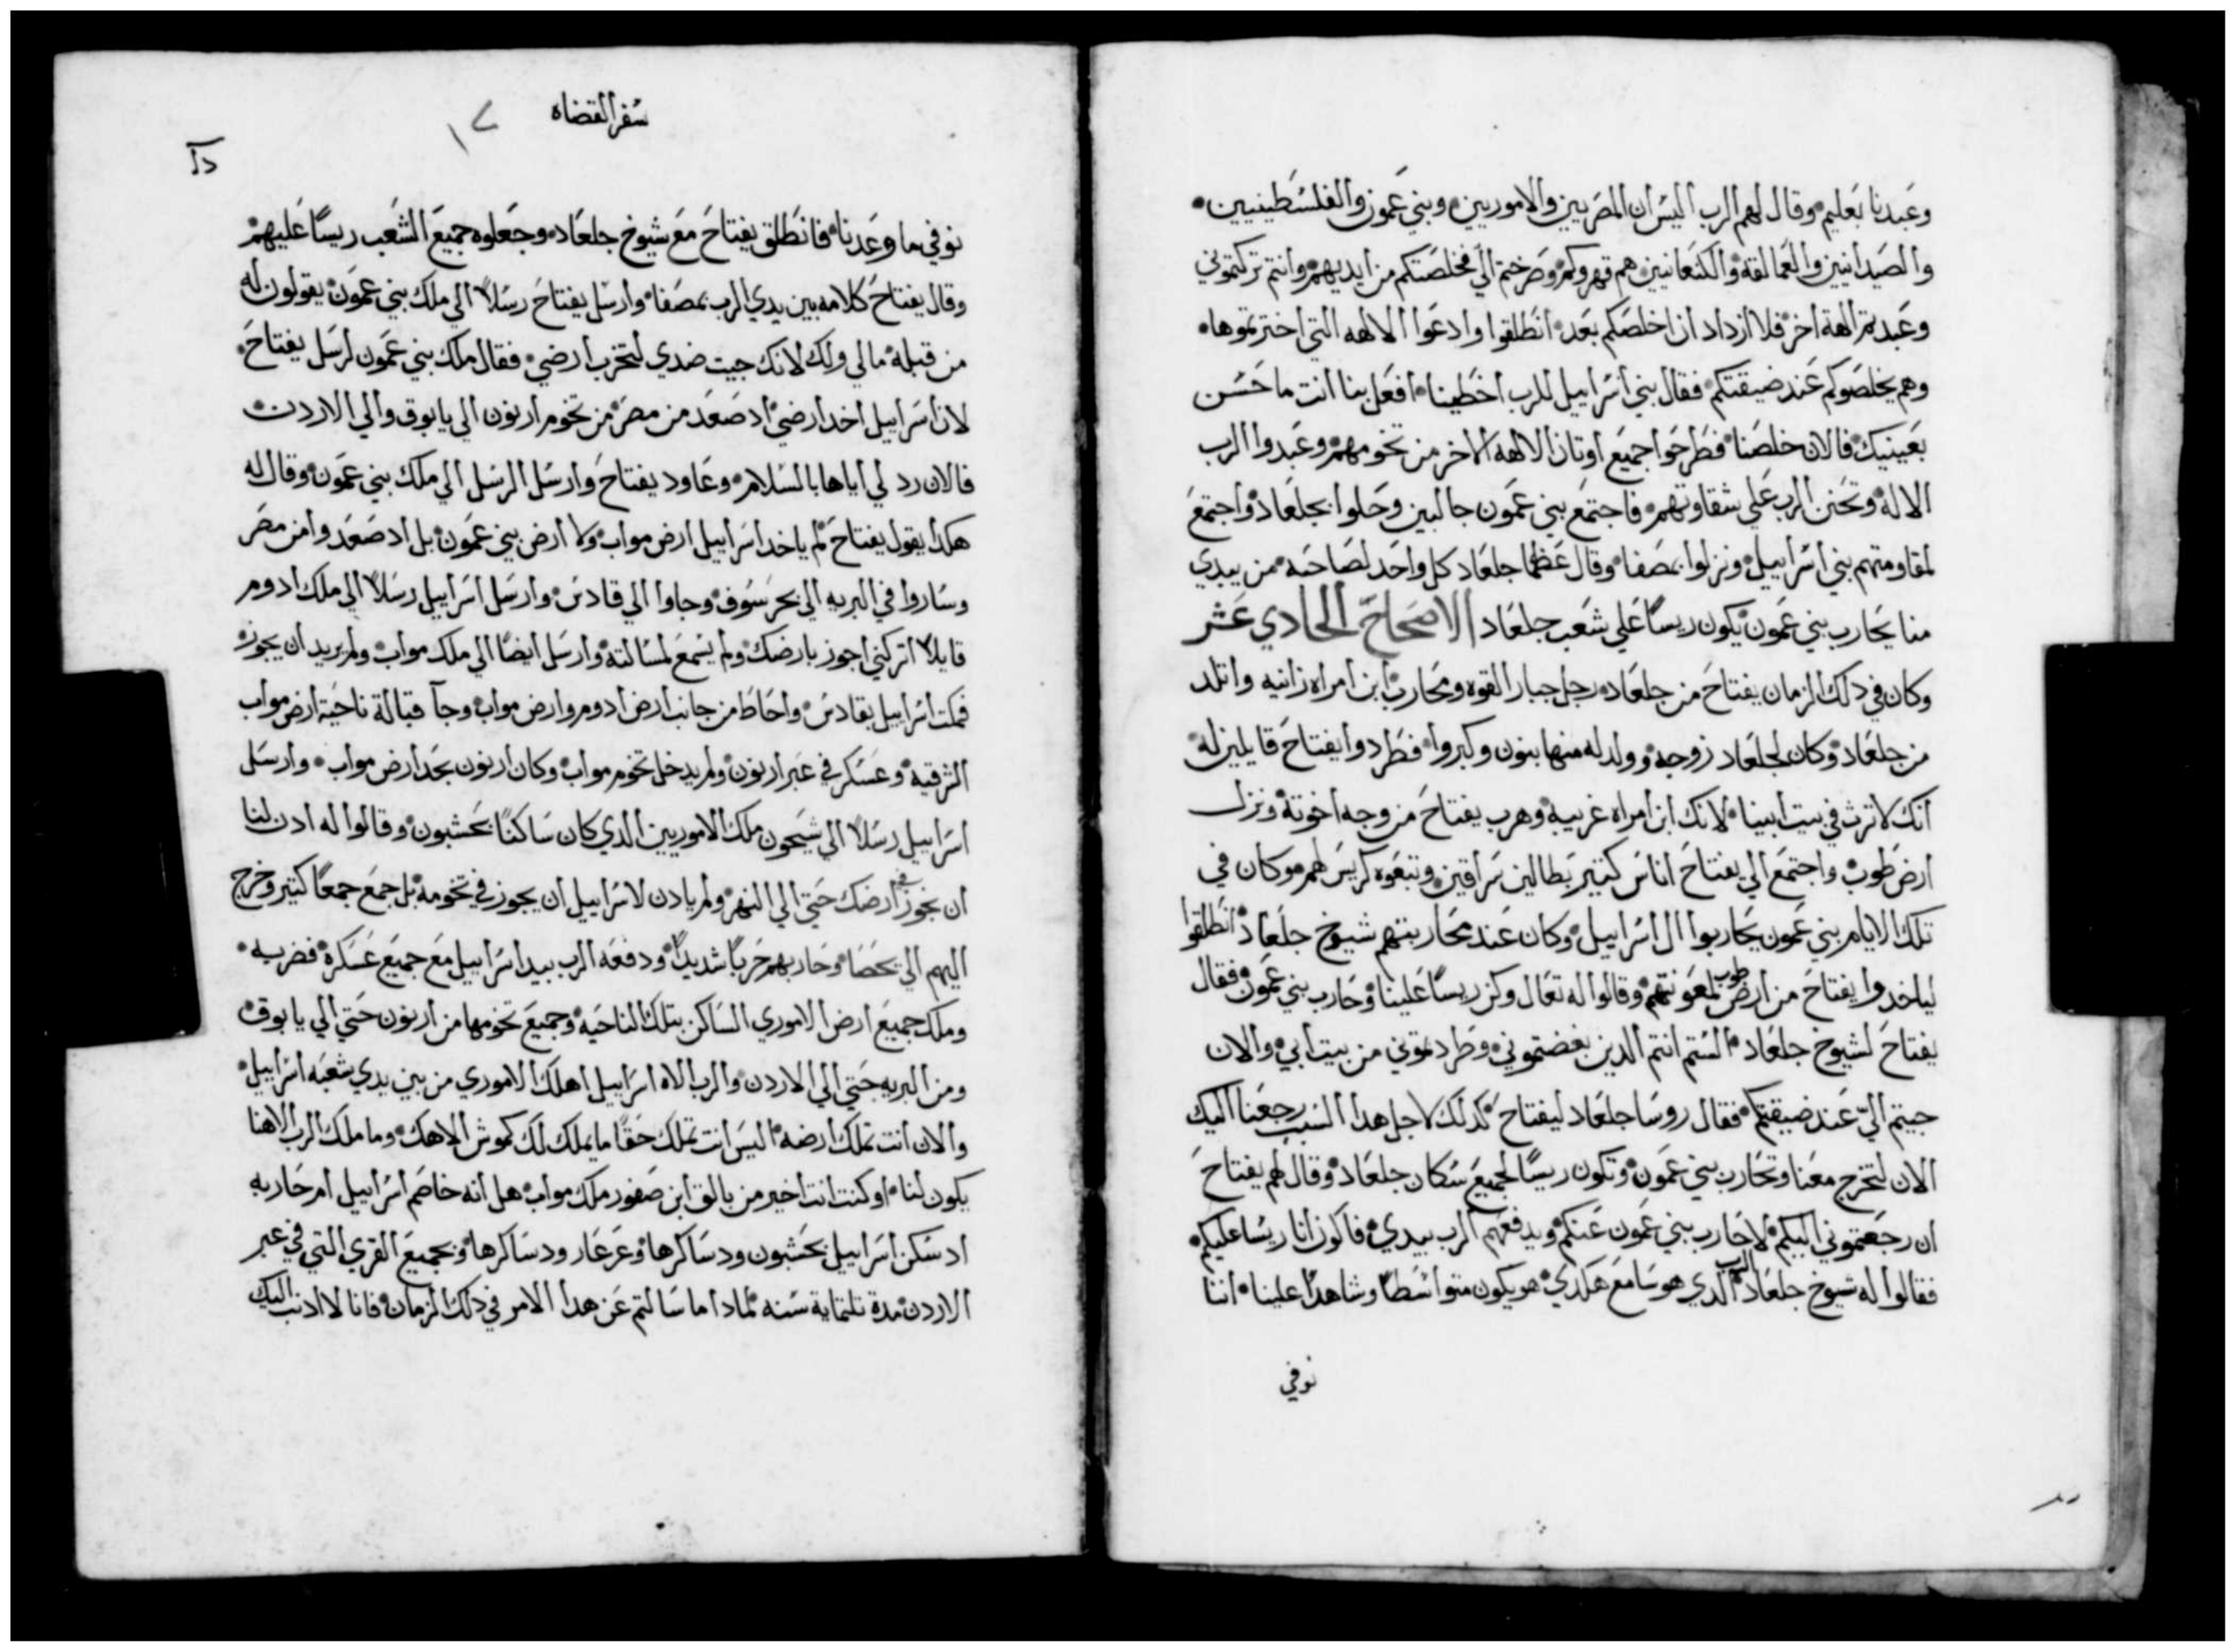 وعبدنا بعليم وقال لهم الرب اليس ان المصريين والاموريين وبني عمون والفلسطينيين
والصيدانيين والعمالقة والكنعانيين هم قهروكم وصرختم الي فخلصتكم من ايديهم وانتم تركتموني
وعبدتم الهة اخر فلا ازداد ان اخلصكم بعد انطلقوا وادعوا الالهه التي اخترتموها
وهم يخلصوكم عند ضيقتكم فقال بني اسراييل للرب اخطينا افعل بنا انت ما حسن
بعينيك فالان خلصنا فطرحوا جميع اوتان الالهه الاخر من تخومهم وعبدوا الرب
الاله وتحنن الرب علي شقاوتهم فاجتمع بني عمون جالبين وحلوا بجلعاد واجتمع
لمقاومتهم بني اسراييل ونزلوا بمصفا وقال عظما جلعاد كل واحد لصاحبه من يبدي
منا يحارب بني عمون يكون ريسًا علي شعب جلعاد الاصحاح الحادي عشر
وكان في دلك الزمان يفتاح من جلعاد رجل جبار القوه ومحارب ابن امراه زانيه واتلد
من جلعاد وكان لجلعاد زوجه وولد له منها بنون وكبروا فطردوا يفتاح قايلين له
انك لا ترث في بيت ابينا لانك ابن امراه غريبه وهرب يفتاح من وجه اخوته ونزل
ارض طوب واجتمع الي يفتاح اناس كتير بطالين سراقين وتبعوه كريس لهم وكان في
تلك الايام بني عمون يحاربوا ال اسراييل وكان عند محاربتهم شيوخ جلعاد انطلقوا
لياخدوا يفتاح من ارض طوب لمعونتهم وقالوا له تعال وكن ريسًا علينا وحارب بني عمون فقال
يفتاح لشيوخ جلعاد الستم انتم الدين بغضتموني وطردتموني من بيت ابي والان
جيتم الي عند ضيقتكم فقال روسا جلعاد ليفتاح كدلك لاجل هدا السبب رجعنا اليك
الان لتخرج معنا وتحارب بني عمون وتكون ريسًا لجميع سكان جلعاد وقال لهم يفتاح
ان رجعتموني اليكم لاحارب بني عمون عنكم ويدفعهم الرب بيدي فاكون انا ريسا عليكم
فقالوا له شيوخ جلعاد الرب الدي هو سامع هكدي هو يكون متواسطًا وشاهدًا علينا اننا
نوفي
سفر القضاه
١٧
نوفي ما وعدنا فانطلق يفتاح مع شيوخ جلعاد وجعلوه جميع الشعب ريسًا عليهم
وقال يفتاح كلامه بين يدي الرب بمصفا وارسل يفتاح رسلاً الي ملك بني عمون يقولون له
من قبله ما لي ولك لانك جيت ضدي لتخرب ارضي فقال ملك بني عمون لرسل يفتاح
لان اسراييل اخد ارضي اد صعد من مصر من تخوم ارنون الي يابوق والي الاردن
فالان رد لي اياها بالسلام وعاود يفتاح وارسل الرسل الي ملك بني عمون وقال له
هكدا يقول يفتاح لم ياخد اسراييل ارض مواب ولا ارض بني عمون بل اد صعدوا من مصر
وساروا في البريه الي بحر سوف وجاوا الي قادس وارسل اسراييل رسلاً الي ملك ادوم
قايلاً اتركني اجوز بارضك ولم يسمع لمسالته وارسل ايضًا الي ملك مواب ولم يريد ان يجوزه
فمكت اسراييل بقادس واحاط من جانب ارض ادوم وارض مواب وجآ قبالة ناحية ارض مواب
الشرقيه وعسكر في عبر ارنون ولم يدخل تخوم مواب وكان ارنون بحد ارض مواب وارسل
اسراييل رسلاً الي شيحون ملك الاموريين الدي كان ساكنًا بحشبون وقالوا له ادن لنا
ان نجوز في ارضك حتي الي النهر ولم يادن لاسراييل ان يجوز في تخومه بل جمع جمعًا كتير وخرج
اليهم الي يحصا وحاربهم حربًا شديدًا ودفعه الرب بيد اسراييل مع جميع عسكره فضربه
وملك جميع ارض الاموري الساكن بتلك الناحيه وجميع تخومها من ارنون حتي الي يابوق
ومن البريه حتي الي الاردن والرب الاه اسراييل اهلك الاموري من بين يدي شعبه اسراييل
والان انت تملك ارضه اليس انت تملك حقًا ما يملك لك كموش الاهك وما ملك الرب الاهنا
يكون لنا او كنت انت اخير من بالق ابن صفور ملك مواب هل انه خاصم اسراييل ام حاربه
اد سكن اسراييل بحشبون ودساكرها وعرعار ودساكرها وبجميع القري التي في عبر
الاردن مدة تلتماية سنه لمادا ما سالتم عن هدا الامر في دلك الزمان فانا لا ادنب اليك